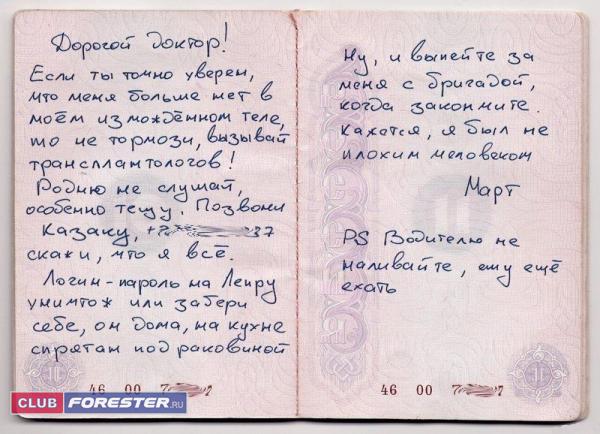 Дорогой доктор!
Если ты точно уверен,
что меня больше нет в
моём измождённом теле,
то не тормози, вызывай
трансплантологов!
Родню не слушай,
особенно тещу. Позвони
Казаку, +7 37
скажи, что я всё.
Логин-пароль на Лепру
уничтож или забери
себе, он дома, на кухне
спрятан под раковиной
46 00 7
CLUB FORESTER.RU
Ну, и выпейте за
меня с бригадой,
когда закончите.
Кажется, я был не
плохим человеком
Март
PS Водителю не
наливайте, ему ещё
ехать
46 00 7